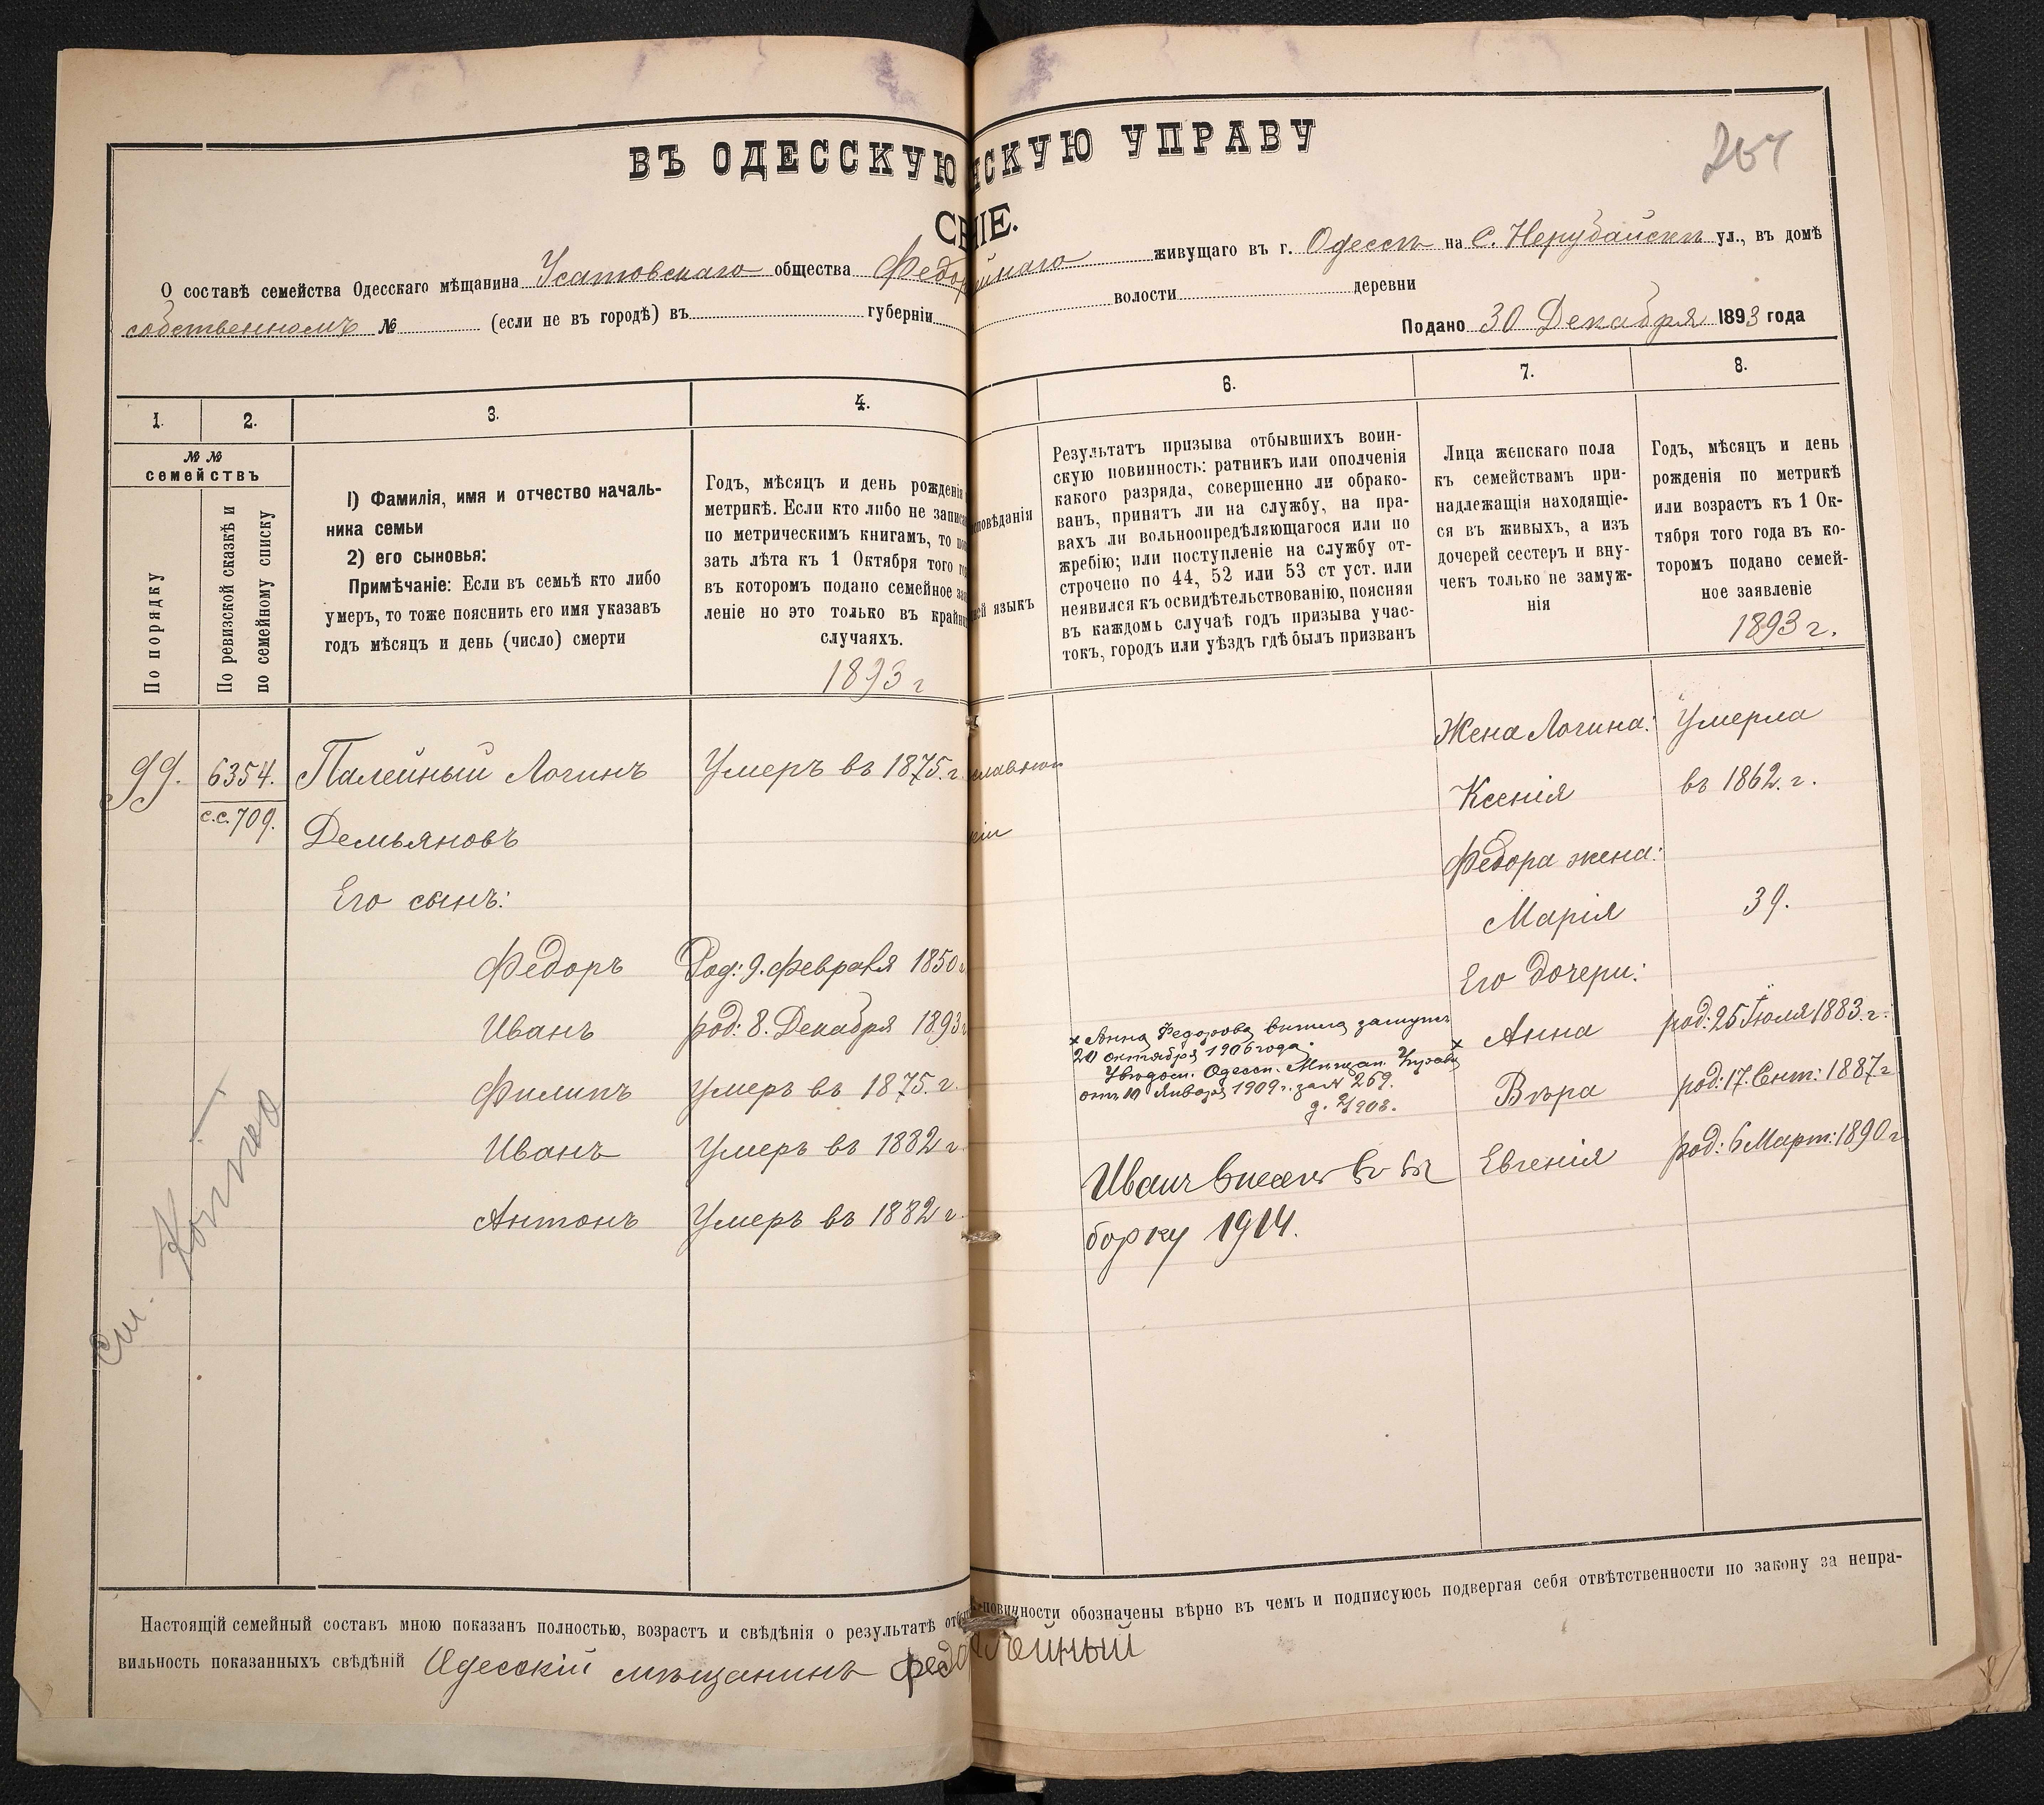 ВЪ ОДЕССКУЮ НСКУЮ УПРАВУ
264
НІЕ.
О составѣ семейства Одесскаго мѣщанина Усатовскаго общества Федо живущаго въ г. Одессѣ на с. Нерубайскѣ ул., въ домѣ
собственномъ № (если не въ городѣ) въ губерніи волости деревни
Подано 30 Декабря 1893 года
1. 2. 3. 4. 6. 7. 8.
№ №
семействъ
По порядку
По ревизской сказкѣ и
по семейному списку
1) Фамилія, имя и отчество началь-
ника семьи
2) его сыновья:
Примѣчаніе: Если въ семьѣ кто либо
умеръ, то тоже пояснить его имя указавъ
годъ мѣсяцъ и день (число) смерти
Годъ, мѣсяцъ и день рожденія
метрикѣ. Если кто либо не запис
по метрическимъ книгамъ, то
зать лѣта къ 1 Октября того
въ которомъ подано семейное
леніе но это только въ край
случаяхъ.
1893 г
сповѣданія
языкъ
Результатъ призыва отбывшихъ воин-
скую повинность: ратникъ или ополченія
какого разряда, совершенно ли обрако-
ванъ, принятъ ли на службу, на пра-
вахъ ли вольноопредѣляющагося или по
жребію; или поступленіе на службу от-
строчено по 44, 52 или 53 ст уст. или
неявился къ освидѣтельствованію, поясняя
въ каждомъ случаѣ годъ призыва учас-
токъ, городъ или уѣздъ гдѣ былъ призванъ
Лица женскаго пола
къ семействамъ при-
надлежащія находящіе-
ся въ живыхъ, а изъ
дочерей сестеръ и вну-
чекъ только не замуж-
нія
Годъ, мѣсяцъ и день
рожденія по метрикѣ
или возрастъ къ 1 Ок-
тября того года въ ко-
торомъ подано семей-
ное заявленіе
1893 г.
99. 6354. Палейный Логинъ Умеръ въ 1875. г. славнои
с.с. 709. Демьяновъ
Его сынъ:
Федоръ Род: 9. Февраля 1850
Иванъ род: 8. Декабря 1893
Филипъ Умеръ въ 1875. г.
Иванъ Умеръ въ 1882 г
Антонъ Умеръ въ 1882 г
См.
Жена Логина: Умерла
Ксенія въ 1862. г.
Федора жена:
Марія 39.
Его дочери:
х Анна род: 25 Іюля 1883. г.
Вѣра род: 17. Сент: 1887 г
Евгенія род: 6 Март: 1890 г
х Анна Федорова вышла замужъ
20 октября 1906 года.
Увѣдом. Одесск. Мѣщан. Управы
отъ 10 Января 1909 г. за № 269.
Иванъ внесен въ вы
борку 1914.
Настоящій семейный составъ мною показанъ полностью, возрастъ и свѣдѣнія о результатѣ повинности обозначены вѣрно въ чемъ и подписуюсь подвергая себя отвѣтственности по закону за непра-
вильность показанныхъ свѣдѣній Одесскій мѣщанинъ Федо лейный